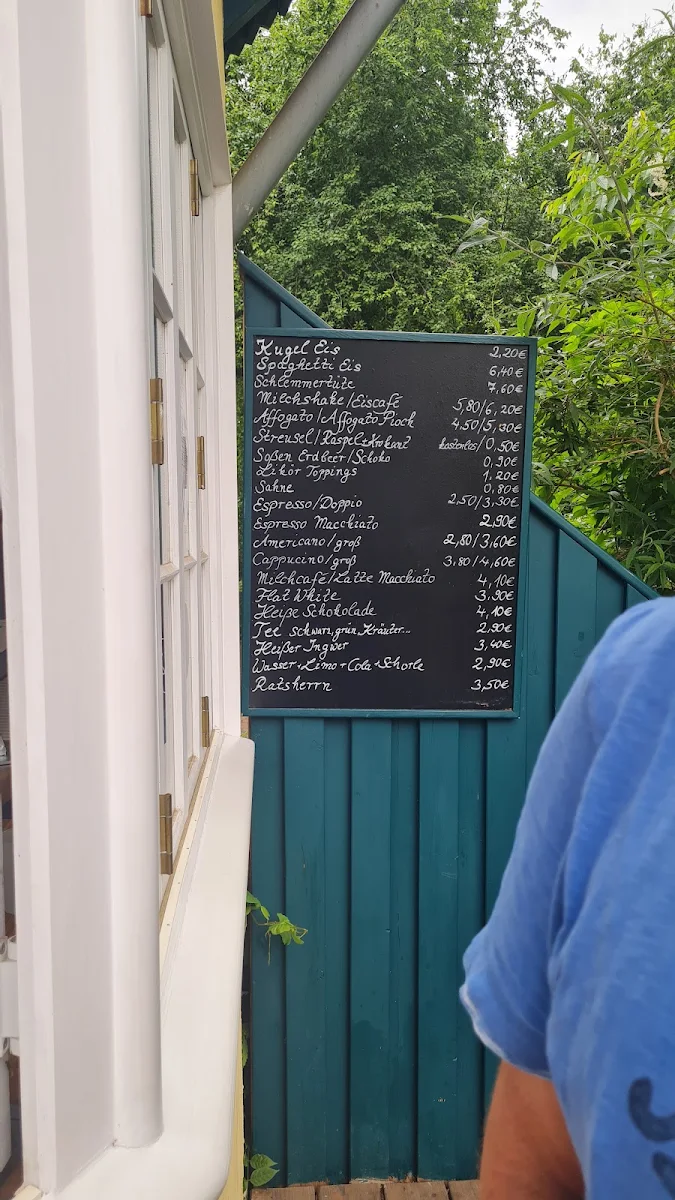 Kugel Eis 2,20€
Spaghetti Eis 6,40€
Schlemmertüte 7,60€
Milchshake/Eiscafé 5,80/6,20€
Affogato/Affogato Pisch 4.50/5,30€
Streusel/Raspel+Krokant kostenlos/0,50€
Soßen Erdbeer/Schoko 0,90€
Likör Toppings 1.20€
Sahne 0,80€
Espresso/Doppio 2,50/3,30€
Espresso Macchiato 2,90€
Americano/groß 2,80/3,60€
Cappucino/groß 3.80/4,60€
Milchcafé/Latte Macchiato 4,10€
Flat White 3.90€
Heiße Schokolade 4,10€
Tee schwarz,grün,Kräuter... 2.90€
Heißer Ingwer 3,40€
Wasser+Limo+Cola+Schorle 2,90€
Ratsherrn 3,50€